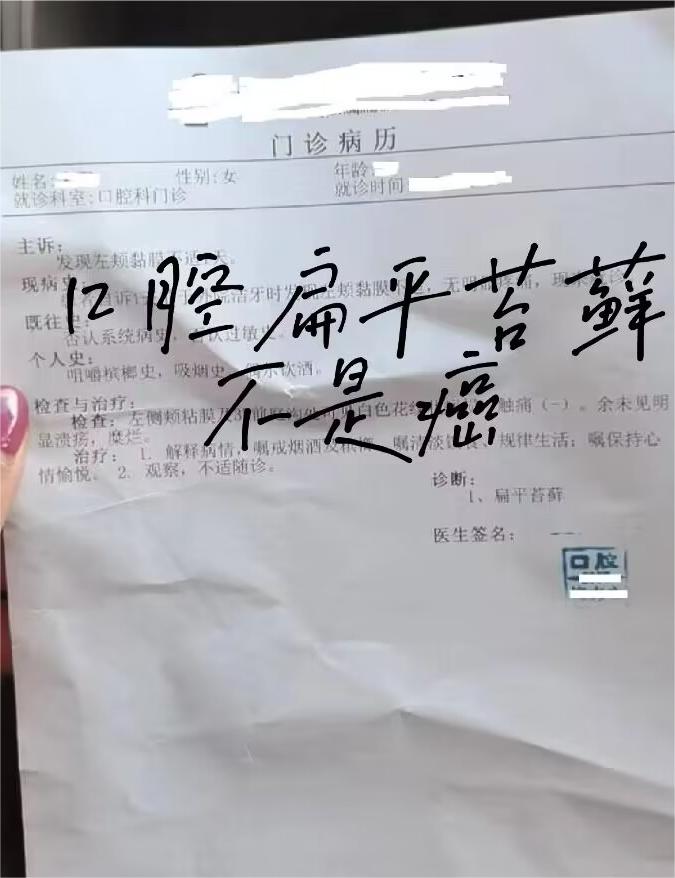 门诊病历
姓名: 性别:女 年龄:
就诊科室:口腔科门诊 就诊时间
主诉:
发现左颊黏膜不适 天。
现病史
自诉 洁牙时发现左颊黏膜 无明 疼痛,现来 诊
既往史
否认系统病史, 否认过敏史
个人史:
咀嚼槟榔史,吸烟史, 饮酒。
口腔扁平苔藓
不是癌
检查与治疗:
检查:左侧颊粘膜及 前 可见白色花 触痛(一)。余未见明
显溃疡,糜烂。
治疗: 1. 解释病情,嘱戒烟酒及槟榔, 嘱清淡饮食、规律生活;嘱保持心
情愉悦。 2. 观察,不适随诊。
诊断:
1、扁平苔藓
医生签名:
口腔